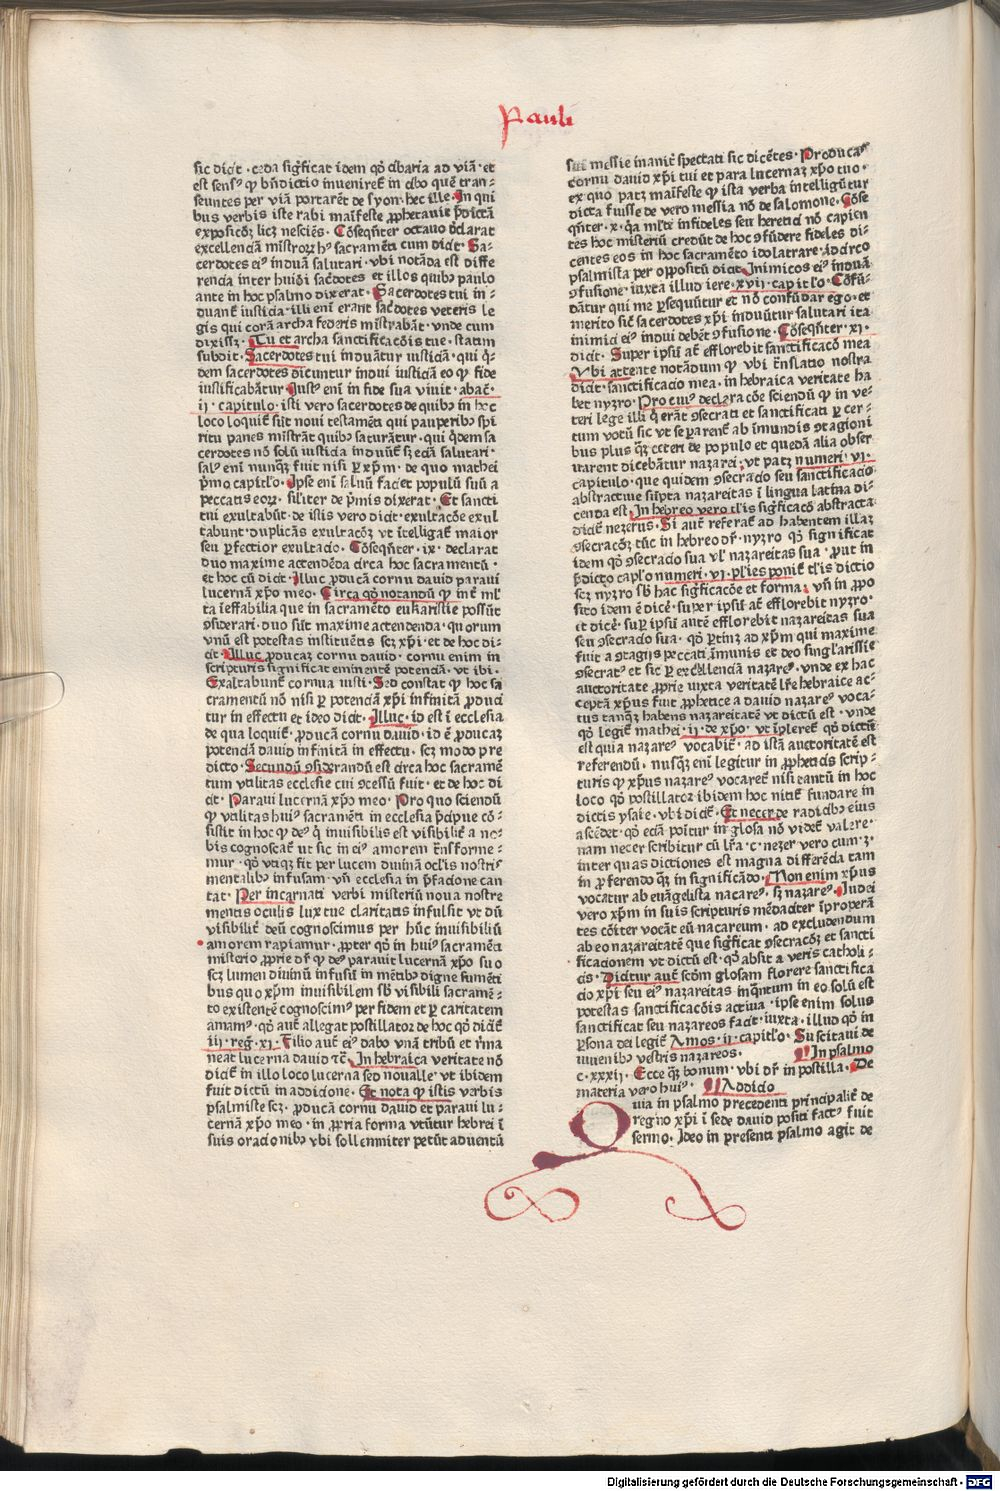 Pauli
sic dicit · ceda sigficat idem qd cibaria ad viā · et
est sens⁹ ꝙ bn̄dictio inveniret in cibo quē tran⸗
seuntes per viā portarēt de syon · hec ille · In qui
bus verbis iste rabi maīfeste ꝓphetavit p̄dictā
expositōꝫ licꝫ nesciēs · Cōseqn̄ter octavo d̄clarat
excellenciā mīstroꝝ h⁹ sacramēti cum dicit · Sa⸗
cerdotes ei⁹ induā salutari · vbi notāda est diffe
rencia inter hui⁹di sac̄dotes et illos quibꝫ paulo
ante in hoc psalmo dixerat · Sacerdotes tui in⸗
duant̄ iusticia · illi enī erant sac̄dotes veteris le
gis qui corā archa federis mīstrabāt · vnde cum
dixissꝫ · Tu et archa sanctificacōis tue · statim
subdit · Sacerdotes tui induātur iusticiā · qui q̄⸗
dem sacerdotes dicuntur indui iusticiā eo ꝙ fide
iustificabātur · Just⁹ enī in fide sua vivit · abac̄ ·
ii · capitulo · isti vero sacerdotes de quibꝫ in hoc
loco loquit̄ sūt novi testamēti qui pauperibꝫ spi
ritu panes mīstrāt quibꝫ saturātur · qui q̄dem sa
cerdotes nō solū iusticia induūt̄ sꝫ eciā salutari ·
sal⁹ enī nunqꝫ fuit nisi ꝑ xp̄m · de quo mathei
p̄mo capitl̄o · Ipse enī salvū faciet populū suū a
peccatis eoꝝ · sil̄iter de p̄mis dixerat · Et sancti
tui exultabūt · de istis vero dicit · exultacōe exul
tabunt · duplicās exultacōꝫ vt ītelligat̄ maior
seu ꝑfectior exultacio · Cōseqn̄ter · ix · declarat
duo maxime attendēda circa hoc sacramentū ·
et hoc cū dicit · Illuc ꝓducā cornu david paravi
lucernā xp̄o meo · Circa qd̄ notandū ꝙ int̄ ml̄
ta īeffabilia que in sacramēto eukaristie possūt
ꝯsiderari · duo sūt maxime attendenda · quorum
vnū est potestas instituētis scꝫ xp̄i · et de hoc di⸗
cit · Illuc ꝓducaꝫ cornu david · cornu enim in
scripturis significat eminentē potenciā · vt ibi ·
Exaltabunt̄ cornua iusti · Sed constat ꝙ hoc sa
cramentū nō nisi ꝑ potenciā xp̄i infinitā ꝓduci
tur in effectu et ideo dicit · Illuc · id est ī ecclesia
de qua loquit̄ · ꝓducā cornu david · id ē ꝓducaꝫ
potenciā david infinitā in effectu · scꝫ modo pre
dicto · Secundū ꝯsiderandū est circa hoc sacramē
tum vtilitas ecclesie cui ꝯcessū fuit · et de hoc di
cit · Paravi lucernā xp̄o meo · Pro quo sciendū
ꝙ vtilitas hui⁹ sacramēti in ecclesia p̄cipue cō⸗
sistit in hoc ꝙ de⁹ q̄ invisibilis est visibilit̄ a no⸗
bis cognoscat̄ ut sic in ei⁹ amorem t̄nsforme⸗
mur · qd̄ vtiqꝫ fit per lucem divinā ocl̄is nostris
mentalibꝫ infusam · vn̄ ecclesia in p̄facione can
tat · Per incarnati verbi misteriū nova nostre
mentis oculis lux tue claritatis infulsit vt dū
visibilit̄ deū cognoscimus per hūc invisibiliū
amorem rapiamur · ꝓpter qd̄ in hui⁹ sacramēti
misterio ꝓprie dr̄ ꝙ de⁹ paravit lucernā xp̄o suo
scꝫ lumen divinū infusū in mētibꝫ digne sumēti
bus quo xp̄m invisibilem sb̄ visibili sacramē⸗
to existentē cognoscim⁹ per fidem et ꝑ caritatem
amam⁹ · qd̄ aut̄ allegat postillator de hoc qd̄ dicit̄
iii · reḡ · xi · Filio aut̄ ei⁹ dabo vnā tribū et r̄ma
neat lucerna david ⁊c̄ · In hebraica veritate nō
dicit̄ in illo loco lucerna sed novalle · vt ibidem
fuit dictū in addicione · Et nota ꝙ istis verbis
psalmiste scꝫ · ꝓducā cornu david et paravi lu⸗
cernā xp̄o meo · in ꝓpria forma vtūtur hebrei ī
suis oracionibꝫ vbi sollenniter petūt adventū
sui messie inanit̄ spectati sic dicētes · Producat̄
cornu david xp̄i tui et para lucernaꝫ xp̄o tuo ·
ex quo patꝫ maīfeste ꝙ ista verba intelligūtur
dicta fuisse de vero messia nō de salomone · Cōse
qn̄ter · x · qa ml̄te infideles seu heretici nō capien
tes hoc misteriū credūt de hoc ꝯfūdere fideles di⸗
centes eos in hoc sacramēto idolatrare · idcirco
psalmista per oppositū dicit · Inimicos ei⁹ induā
ꝯfusione · iuxta illud iere · xvii · capitl̄o · Cōfū⸗
dātur qui me ꝑsequūtur et nō confūdar ego · et
merito sic̄ sacerdotes xp̄i induūtur salutari ita
inimici ei⁹ indui debēt ꝯfusione · Cōseqn̄ter · xi ·
dicit · Super ipsū at̄ efflorebit sanctificacō mea
Vbi attente notādum ꝙ vbi t̄nslatio nostra
dicit · sanctificacio mea · in hebraica veritate ha
bet nyzro · Pro cui⁹ declaracōe sciendū ꝙ in ve⸗
teri lege illi q̄ erāt ꝯsecrati et sanctificati ꝑ cer⸗
tum votū sic vt se ꝑarent̄ ab īmundis ꝯtagioni
bus plus qꝫ ceteri de populo et quedā alia obser
varent dicebātur nazarei · vt patꝫ numeri · vi ·
capitulo · que quidem ꝯsecracio seu sanctificacio
abstractive sūpta nazareitas ī lingua latina di⸗
cenda est · In hebreo vero tl̄is sigficacō abstracta
dicit̄ nezerus · Si aut̄ referat̄ ad habentem illaꝫ
ꝯsecracōꝫ tūc in hebreo dr̄ · nyzro qd̄ significat
idem qd̄ ꝯsecracio sua vl̄ nazareitas sua · prout in
p̄dicto capl̄o numeri · vi · pl̄ies ponit̄ tl̄is dictio
scꝫ nyzro sb̄ hac sigficacōe et forma · vn̄ in ꝓpo
sito idem ē dice⁹ · super ipsū at̄ efflorebit nyzro ·
et dice⁹ · suꝑ ipsū autē efflorebit nazareitas sua
seu ꝯsecracio sua · qd̄ ꝑtinꝫ ad xp̄m qui maxime
fuit a ꝯtagiis peccati īmunis et deo singl̄arissie
ꝯsecrat⁹ et sic ꝑ excellenciā nazare⁹ · vnde ex hac
auctoritate ꝓprie iuxta veritatē lr̄e hebraice ac⸗
ceptā xp̄us fuit ꝓphetice a david nazare⁹ voca⸗
tus tanqꝫ habens nazareitatē vt dictū est · vnde
qd̄ legit̄ mathei · ii · de xp̄o · vt īpleret̄ qd̄ dictū
est quia nazare⁹ vocabit̄ · ad istā auctoritatē est
referendū · nusqꝫ enī legitur in ꝓpheticis scrip⸗
turis ꝙ xp̄us nazare⁹ vocaret̄ nisi tantū in hoc
loco qd̄ postillator ibidem hoc nitit̄ fundare in
dictis ysaie · vbi dicit̄ · Et necer de radicibꝫ eius
ascēdet · qd̄ eciā poītur in glosa nō videt̄ valere ·
nam necer scribitur cū lr̄a · c · nezer vero cum · z ·
inter quas dictiones est magna differēcia tam
in ꝓferendo qꝫ in significādo · Non enim xp̄us
vocatur ab evāgelista nacare⁹ · sꝫ nazare⁹ · Judei
vero xp̄m in suis scripturis mēdaciter īproperā
tes cōiter vocāt eū nacareum · ad excludendum
ab eo nazareitatē que sigficat ꝯsecracōꝫ et sancti
ficacionem vt dictū est · qd̄ absit a veris catholi⸗
cis · Dicitur aut̄ scd̄m glosam florere sanctifica
cio xp̄i seu ei⁹ nazareitas inqn̄tum in eo solū est
potestas sanctificacōis activa · ipse enim solus
sanctificat seu nazareos facit · iuxta · illud qd̄ in
ꝑsona dei legit̄ Amos · ii · capitl̄o · Suscitavi de
iuvenibꝫ vestris nazareos · ¶ In psalmo
c · xxxii · Ecce qꝫ bonum · vbi dr̄ in postilla · De
materia vero hui⁹ · ¶ Addicio
Quia in psalmo precedenti principalit̄ de
regno xp̄i ī sede david positi fact⁹ fuit
sermo · Ideo in presenti psalmo agit de
Digitalisierung gefördert durch die Deutsche Forschungsgemeinschaft - DFG